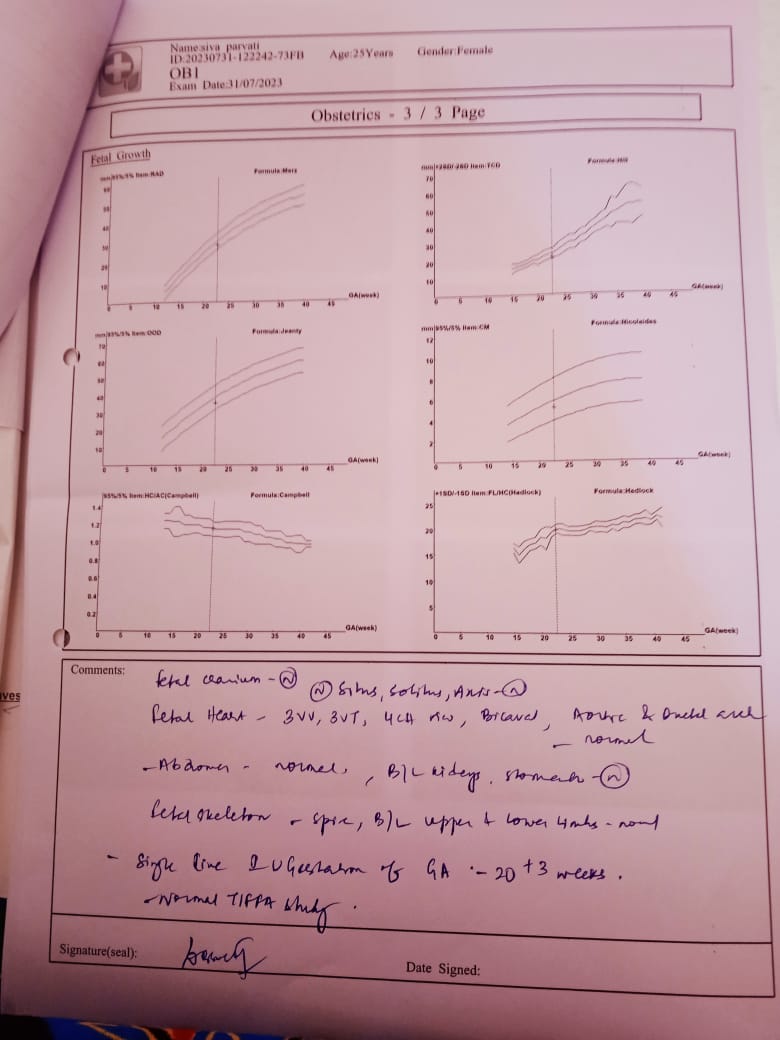 Name:siva parvati
ID:20230731-122242-73FB Age:25Years Gender:Female
OB1
Exam Date:31/07/2023
Obstetrics - 3 / 3 Page
Fetal Growth
mm 95%/5% Item:RAD Formula:Merz
60
50
40
30
20
10
0 5 10 15 20 25 30 35 40 45
GA(week)
mm +2SD/-2SD Item:TCD Formula:Hill
70
60
50
40
30
20
10
0 5 10 15 20 25 30 35 40 45
GA(week)
mm 95%/5% Item:OOD Formula:Jeanty
70
60
50
40
30
20
10
0 5 10 15 20 25 30 35 40 45
GA(week)
mm 95%/5% Item:CM Formula:Nicolaides
12
10
8
6
4
2
0 5 10 15 20 25 30 35 40 45
GA(week)
95%/5% Item:HC/AC(Campbell) Formula:Campbell
1.4
1.2
1.0
0.8
0.6
0.4
0.2
0 5 10 15 20 25 30 35 40 45
GA(week)
+1SD/-1SD Item:FL/HC(Hadlock) Formula:Hadlock
25
20
15
10
5
0 5 10 15 20 25 30 35 40 45
GA(week)
ives
Comments:
fetal cranium - N
N Situs, Solitus, Axis - N
Fetal Heart - 3VV, 3VT, 4CH view, Bicaval, Aortic & Ductal arch
- normal
- Abdomen - normal, B/L kidneys, stomach - N
Fetal skeleton - spine, B/L upper & lower limbs - normal
- Single live IU Gestation of GA :- 20 +3 weeks.
- Normal TIFFA study.
Signature(seal):
Date Signed: